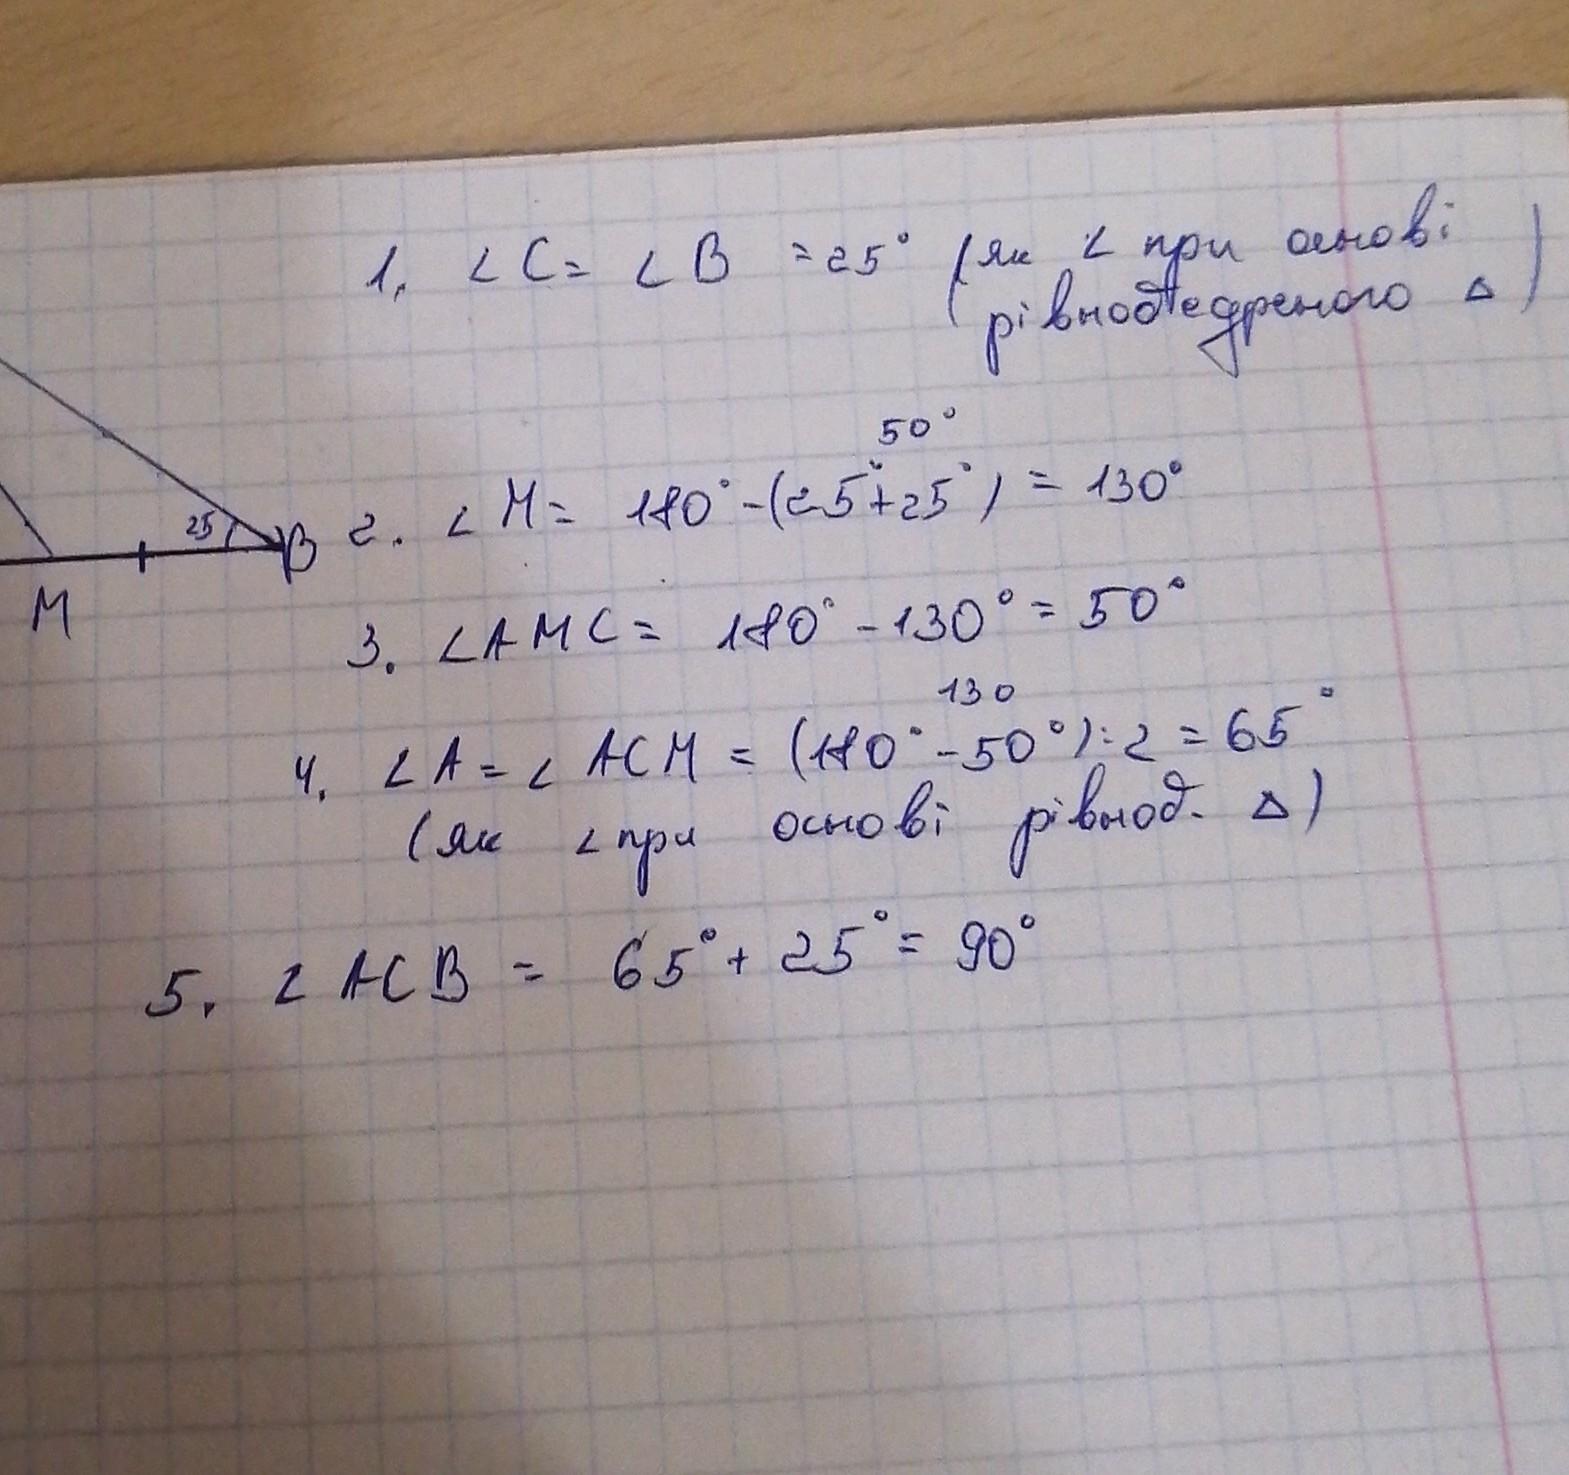 1. ∠C = ∠B = 25° (як ∠ при основі
рівнобедреного △)
50°
25 B 2. ∠M = 180° - (25° + 25°) = 130°
M
3. ∠AMC = 180° - 130° = 50°
130
4. ∠A = ∠ACM = (180° - 50°) : 2 = 65°
(як ∠ при основі рівноб. △)
5. ∠ACB = 65° + 25° = 90°